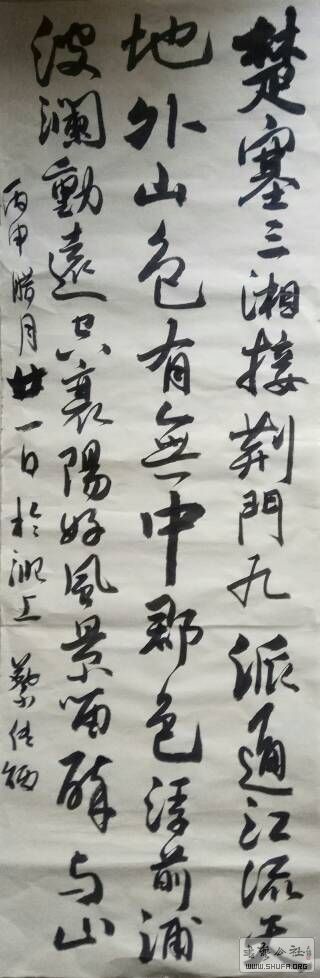 楚塞三湘接荆門九派通江流天
地外山色有無中郡邑浮前浦
波瀾動遠空襄陽好風景留醉与山
丙申腊月廿一日於上
书艺公社
WWW.SHUFA.ORG